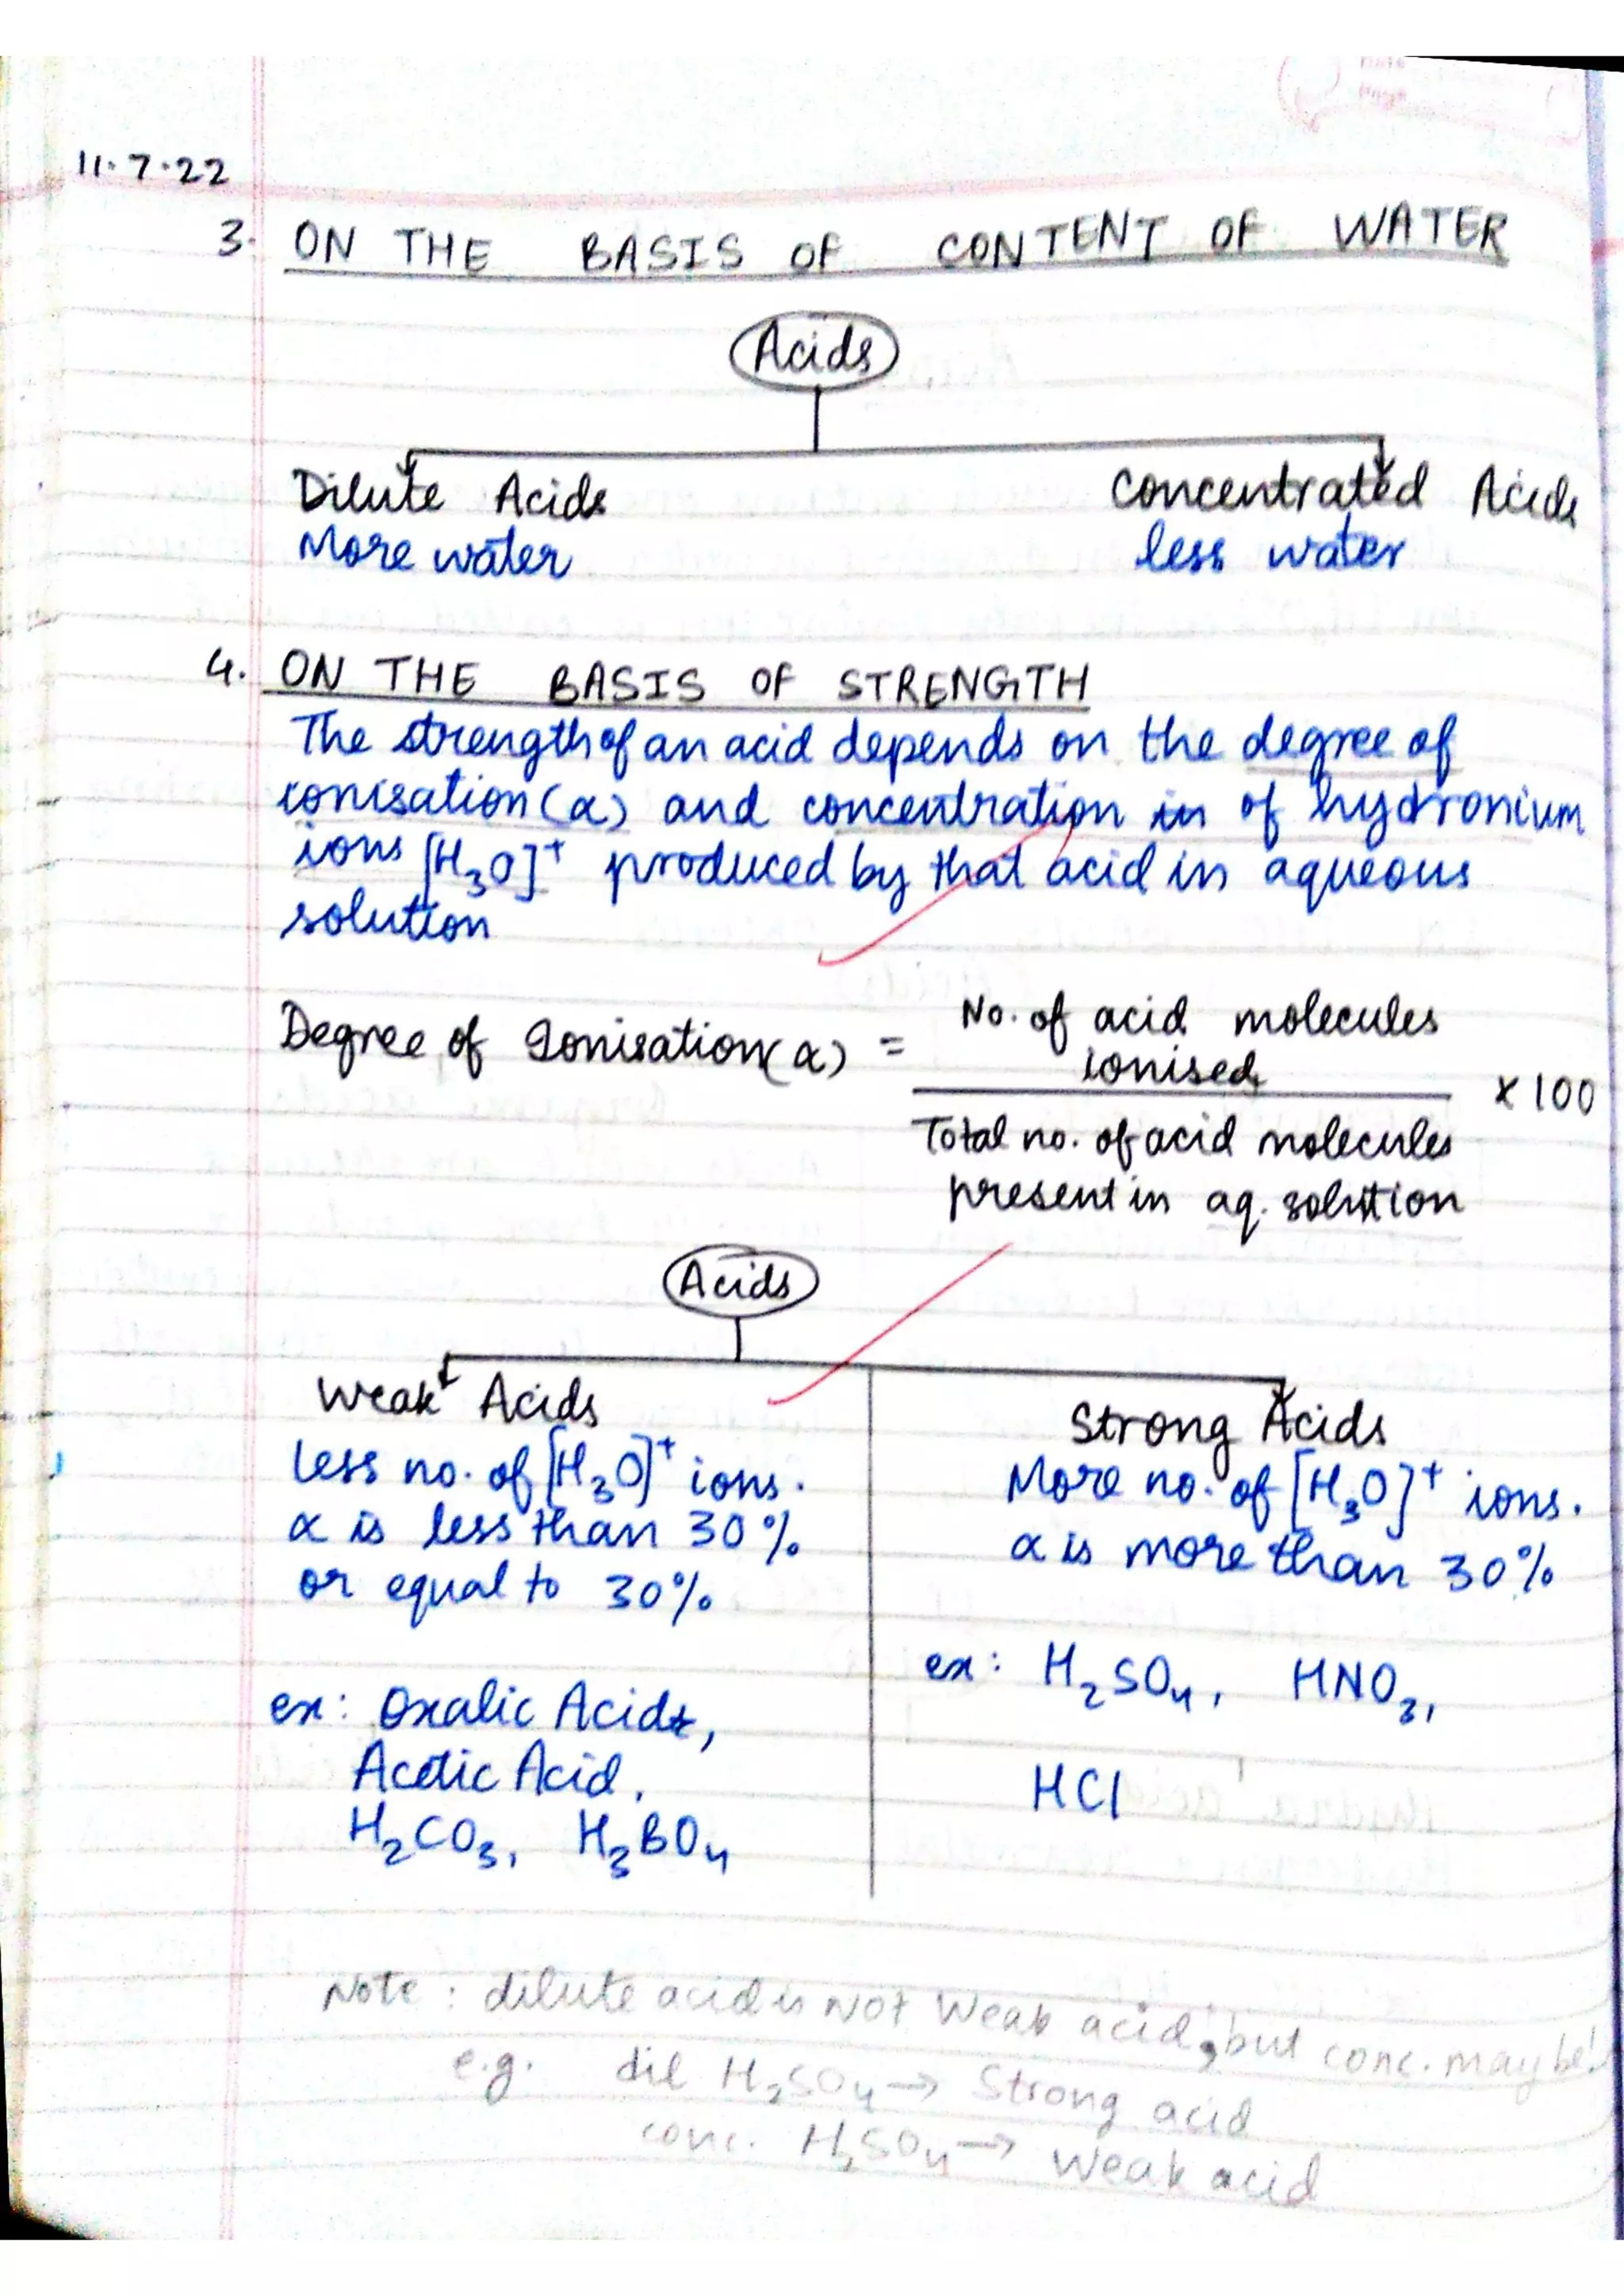 11.7.22
3. ON THE BASIS OF CONTENT OF WATER
Acids
Dilute Acids Concentrated Acids
More water less water
4. ON THE BASIS OF STRENGTH
The strength of an acid depends on the degree of
ionisation (α) and concentration in of hydronium
ions [H₃O]⁺ produced by that acid in aqueous
solution
No. of acid molecules
Degree of Ionisation (α) = ionised × 100
Total no. of acid molecules
present in aq. solution
Acids
Weak Acids
less no. of [H₃O]⁺ ions.
α is less than 30%
or equal to 30%
ex: Oxalic Acid,
Acetic Acid,
H₂CO₃, H₃BO₄
Strong Acids
More no. of [H₃O]⁺ ions.
α is more than 30%
ex: H₂SO₄, HNO₃,
HCl
Note : dilute acid is NOT Weak acid, but conc. may be!
e.g. dil H₂SO₄ → Strong acid
conc. H₂SO₄ → Weak acid